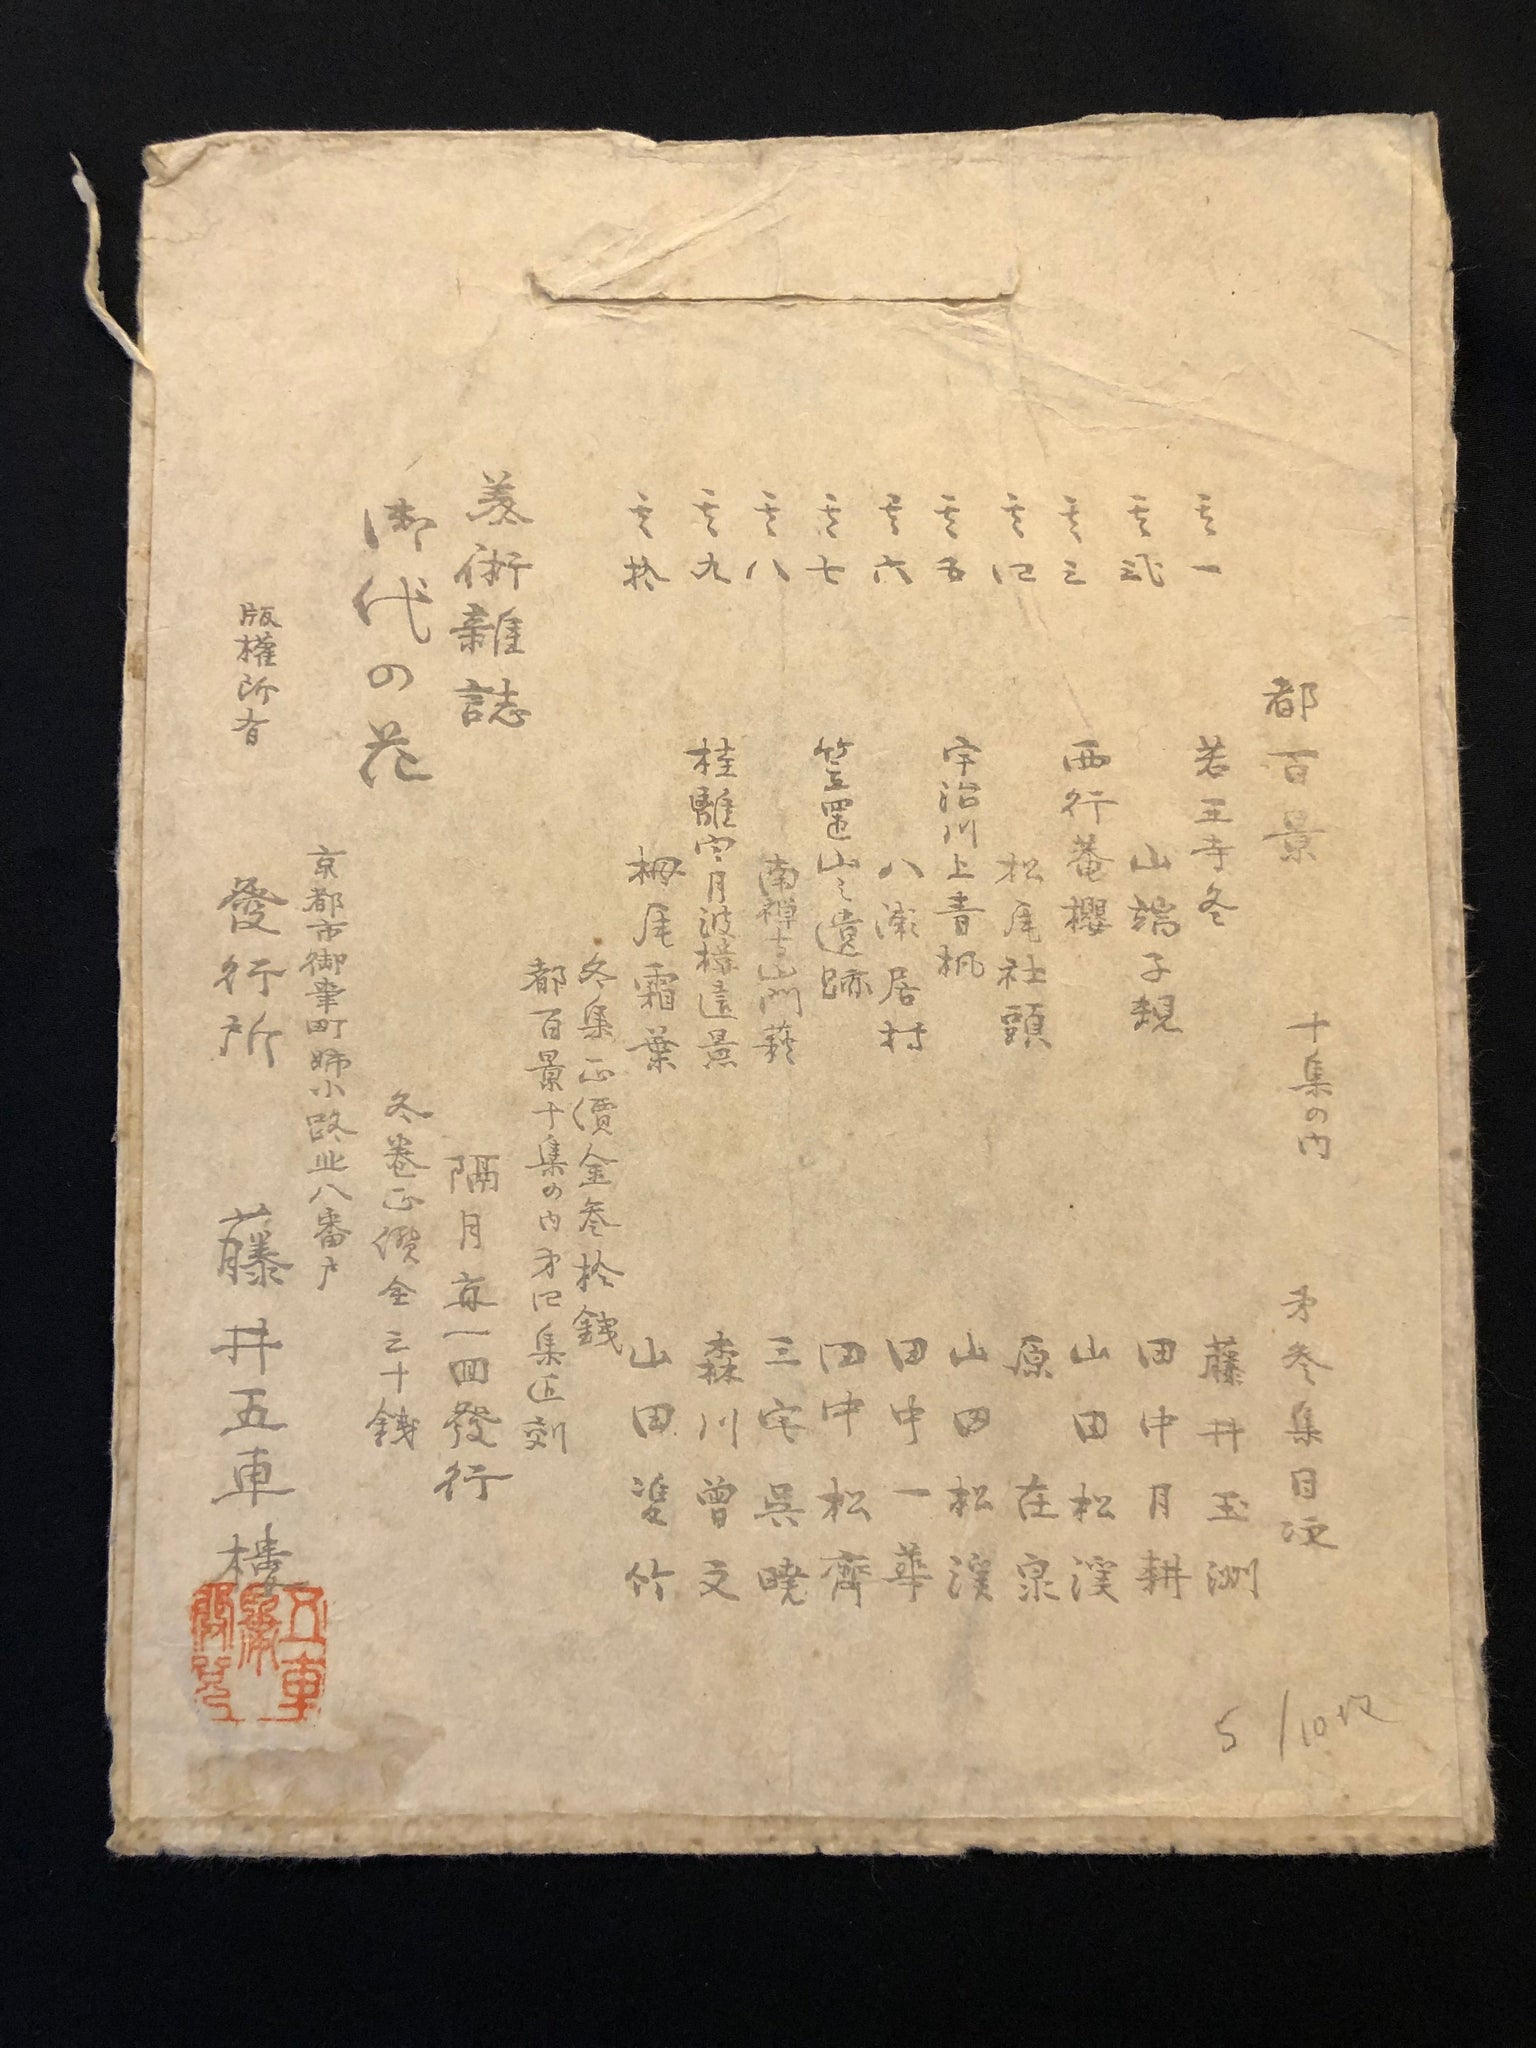 都百景 十集の内 第参集目次
其一 若王寺冬 藤井玉洲
其弐 山端子規 田中月耕
其三 西行菴櫻 山田松渓
其四 松尾社頭 原在泉
其五 宇治川上青楓 山田松渓
其六 八瀬居村 田中一華
其七 笠置山之遺跡 田中松齊
其八 南禅寺山門 三宅呉暁
其九 桂離宮月波樓遠景 森川曽文
其拾 栂尾霜葉 山田竹
冬集正價金参拾銭
都百景十集の内第四集近刻
美術雜誌 隔月一回發行
御代の花 冬巻正價金三十銭
京都市御幸町姉小路北八番戸
版權所有 發行所 藤井五車樓
5/10枚